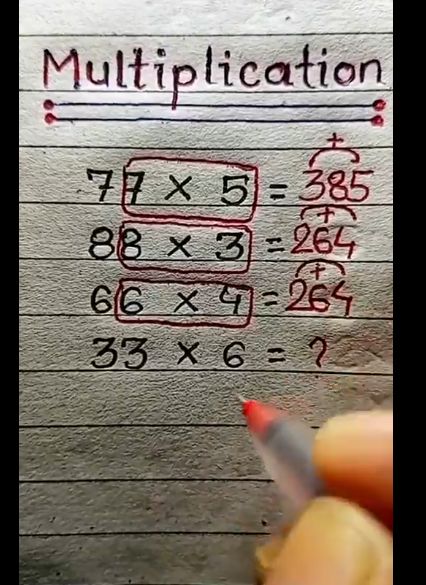 Multiplication
77 × 5 = 385
88 × 3 = 264
66 × 4 = 264
33 × 6 = ?